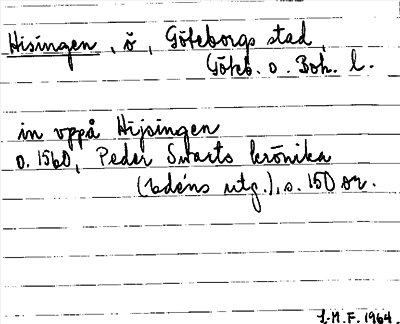 Hisingen, ö, Göteborgs stad,
Göteb. o. Boh. l.
in vppå Hijsingen
o. 1560, Peder Swarts krönika
(Edéns utg.), s. 150 or.
L.M.F. 1964.